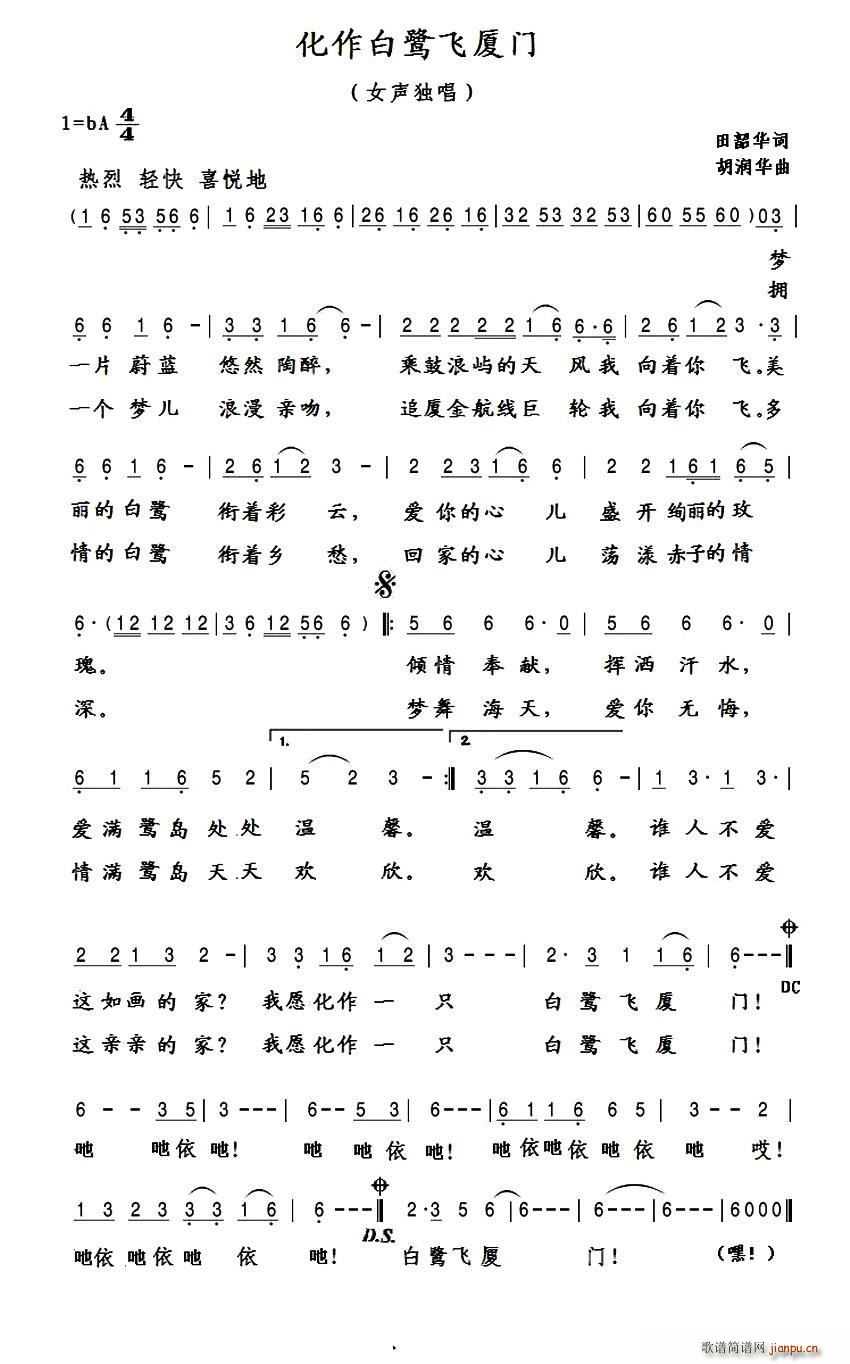 化作白鹭飞厦门
（女声独唱）
1=bA 4/4
田韶华词
胡润华曲
热烈 轻快 喜悦地
(1 6 53 56 6 | 1 6 23 16 6 | 26 16 26 16 | 32 53 32 53 | 60 55 60 ) 03 |
梦
拥
6 6 1 6 - | 3 3 1 6 6 - | 2 2 2 2 2 1 6 6·6 | 2 6 1 2 3·3 |
一片蔚蓝 悠然陶醉， 乘鼓浪屿的天 风我 向着你 飞。美
一个梦儿 浪漫亲吻， 追厦金航线巨 轮我 向着你 飞。多
6 6 1 6 - | 2 6 1 2 3 - | 2 2 3 1 6 6 | 2 2 1 6 1 6 5 |
丽的白鹭 衔着彩 云， 爱你的心 儿 盛开绚丽的玫
情的白鹭 衔着乡 愁， 回家的心 儿 荡漾赤子的情
6·(12 12 12 | 3 6 12 56 6 ) 𝄋 ‖: 5 6 6 6·0 | 5 6 6 6·0 |
瑰。 倾情奉献， 挥洒汗水，
深。 梦舞海天， 爱你无悔，
1. 2.
6 1 1 6 5 2 | 5 2 3 - :‖ 3 3 1 6 6 - | 1 3·1 3· |
爱满鹭岛处处 温 馨。 温 馨。 谁人不爱
情满鹭岛天天 欢 欣。 欢 欣。 谁人不爱
2 2 1 3 2 - | 3 3 1 6 1 2 | 3 - - - | 2·3 1 1 6 | 6 - - - ‖
DC
这如画的家？ 我愿化作一 只 白鹭飞厦 门！
这亲亲的家？ 我愿化作一 只 白鹭飞厦 门！
6 - - 3 5 | 3 - - - | 6 - - 5 3 | 6 - - - | 6 1 1 6 6 5 | 3 - - 2 |
吔 吔依吔！ 吔 吔依吔！ 吔依吔依吔依吔 哎！
1 3 2 3 3 3 1 6 | 6 - - - ‖ 2·3 5 6 6 | 6 - - - | 6 - - - | 6 - - - | 6000 ‖
D.S.
吔依吔依吔 依 吔！ 白鹭飞厦 门！ （嘿！）
歌谱简谱网 jianpu.cn